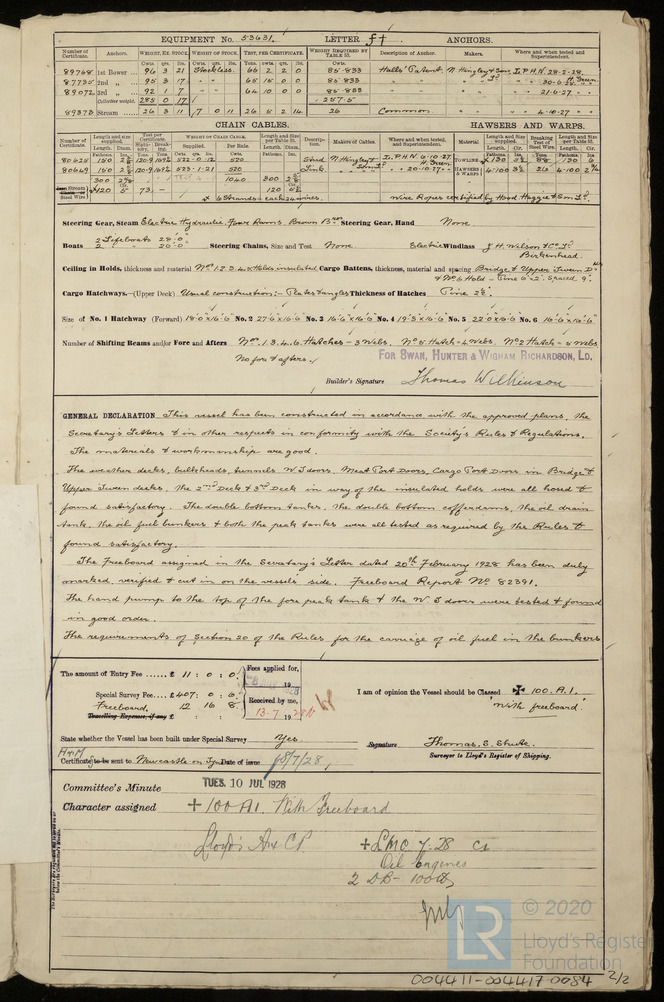 EQUIPMENT No. 53631. LETTER ft ANCHORS.
Number of Certificate. Anchors. WEIGHT, EX. STOCK. WEIGHT OF STOCK. TEST, PER CERTIFICATE. WEIGHT REQUIRED BY TABLE 53. Description of Anchor. Makers. Where and when tested and Superintendent.
Cwts. qrs. lbs. Cwts. qrs. lbs. Tons. cwts. qrs. lbs. Cwts.
89768 1st Bower 96 3 21 Stockless. 66 2 2 0 85·833 Halls' Patent. N. Hingley & Son Ld L.P.H.N. 28-2-28.
87735 2nd 95 3 17 65 15 0 0 85·833 30-6- H. Green
89072 3rd 92 1 7 64 10 0 0 85·833 21-6-27
Collective weight. 285 0 17 257·5
89373 Stream 26 3 11 7 0 11 26 5 2 14 26 Common. 4-10-27
CHAIN CABLES. HAWSERS AND WARPS.
Number of Certificate. Length and size supplied. Test per Certificate. WEIGHT OF CHAIN CABLE. Length and size per Table 53. Description. Makers of Cables. Where and when tested, and Superintendent. Material. Length and size supplied. Breaking Test of Steel Wire. Length and size per Table 53.
80625 150 522-0-12 520 Stud N. Hingley & Sons Ld L.P.H.N. 6-10-27. TOWLINE 130 88 130 6
80649 150 523-1-21 520 Link 20-10-27 HAWSERS & WARPS 4·100 26 4·100
300 1040 300
Steel Wire 120 5 73 120
6 Strands - each 24 wires. Wire Ropes certified by Hood Haggie & Son Ld.
Steering Gear, Steam Electric Hydraulic Four Rams. Brown Bros Steering Gear, Hand None
Boats 2 Lifeboats 28'-0" Steering Chains, Size and Test None Electric Windlass J. H. Wilson & Co. Ld
2 " 20'-0" Birkenhead.
Ceiling in Holds, thickness and material Nos 1·2·3·4 & Holds insulated Cargo Battens, thickness, material and spacing Bridge & Upper Tween Dks
& No 6 Hold - Pine 6" x 2". Spaced 9".
Cargo Hatchways.—(Upper Deck) Usual construction:- Plates & angles Thickness of Hatches Pine 2½".
Size of No. 1 Hatchway (Forward) 18'-0" x 16'-6" No. 2 27'-6" x 16'-6" No. 3 16'-6" x 16'-6" No. 4 19'-3" x 16'-6" No. 5 22'-0" x 16'-6" No. 6 16'-6" x 16'-6"
Number of Shifting Beams and/or Fore and Afters Nos 1. 3. 4. 6. Hatches - 3 Webs. No 5 Hatch - 4 Webs. No 2 Hatch - 5 Webs
No fore & afters.
FOR SWAN, HUNTER & WIGHAM RICHARDSON, LD.
Builder's Signature Thomas Wilkinson
GENERAL DECLARATION This vessel has been constructed in accordance with the approved plans, the
Secretary's Letters & in other respects in conformity with the Society's Rules & Regulations.
The materials & workmanship are good.
The weather decks, bulkheads, tunnels W.T. doors. Meat Port Doors, Cargo Port Doors in Bridge &
Upper Tween decks, the 2nd Deck & 3rd Deck in way of the insulated holds were all hosed &
found satisfactory. The double bottom tanks, the double bottom cofferdams, the oil drain
tank, the oil fuel bunkers & both the peak tanks were all tested as required by the Rules &
found satisfactory.
The Freeboard assigned in the Secretary's Letter dated 20th February 1928 has been duly
marked, verified & cut in on the vessel's side. Freeboard Report No 82391.
The hand pump to the top of the fore peak tank & the W.T. doors were tested & found
in good order.
The requirements of Section 20 of the Rules for the carriage of oil fuel in the bunkers
The amount of Entry Fee £ 11 : 0 : 0. Fees applied for,
19 28
Special Survey Fee £ 407 : 0 : 6 Received by me, I am of opinion the Vessel should be Classed ✠ 100.A.1.
Freeboard, 12 16 8 13-7 19 28 "With freeboard."
Travelling Expenses, if any £ : :
State whether the Vessel has been built under Special Survey Yes. Signature Thomas. S. Shute.
Surveyor to Lloyd's Register of Shipping.
H & M
Certificate to be sent to Newcastle on Tyne Date of issue 18/7/28
Committee's Minute TUES. 10 JUL 1928
Character assigned + 100 A1. With Freeboard
Lloyd's A & CP + LMC 7·28 CS
Oil Engines
2 DB - 100 lb
© 2020
LR
Lloyd's Register
Foundation
004411-004417-0084 2/2